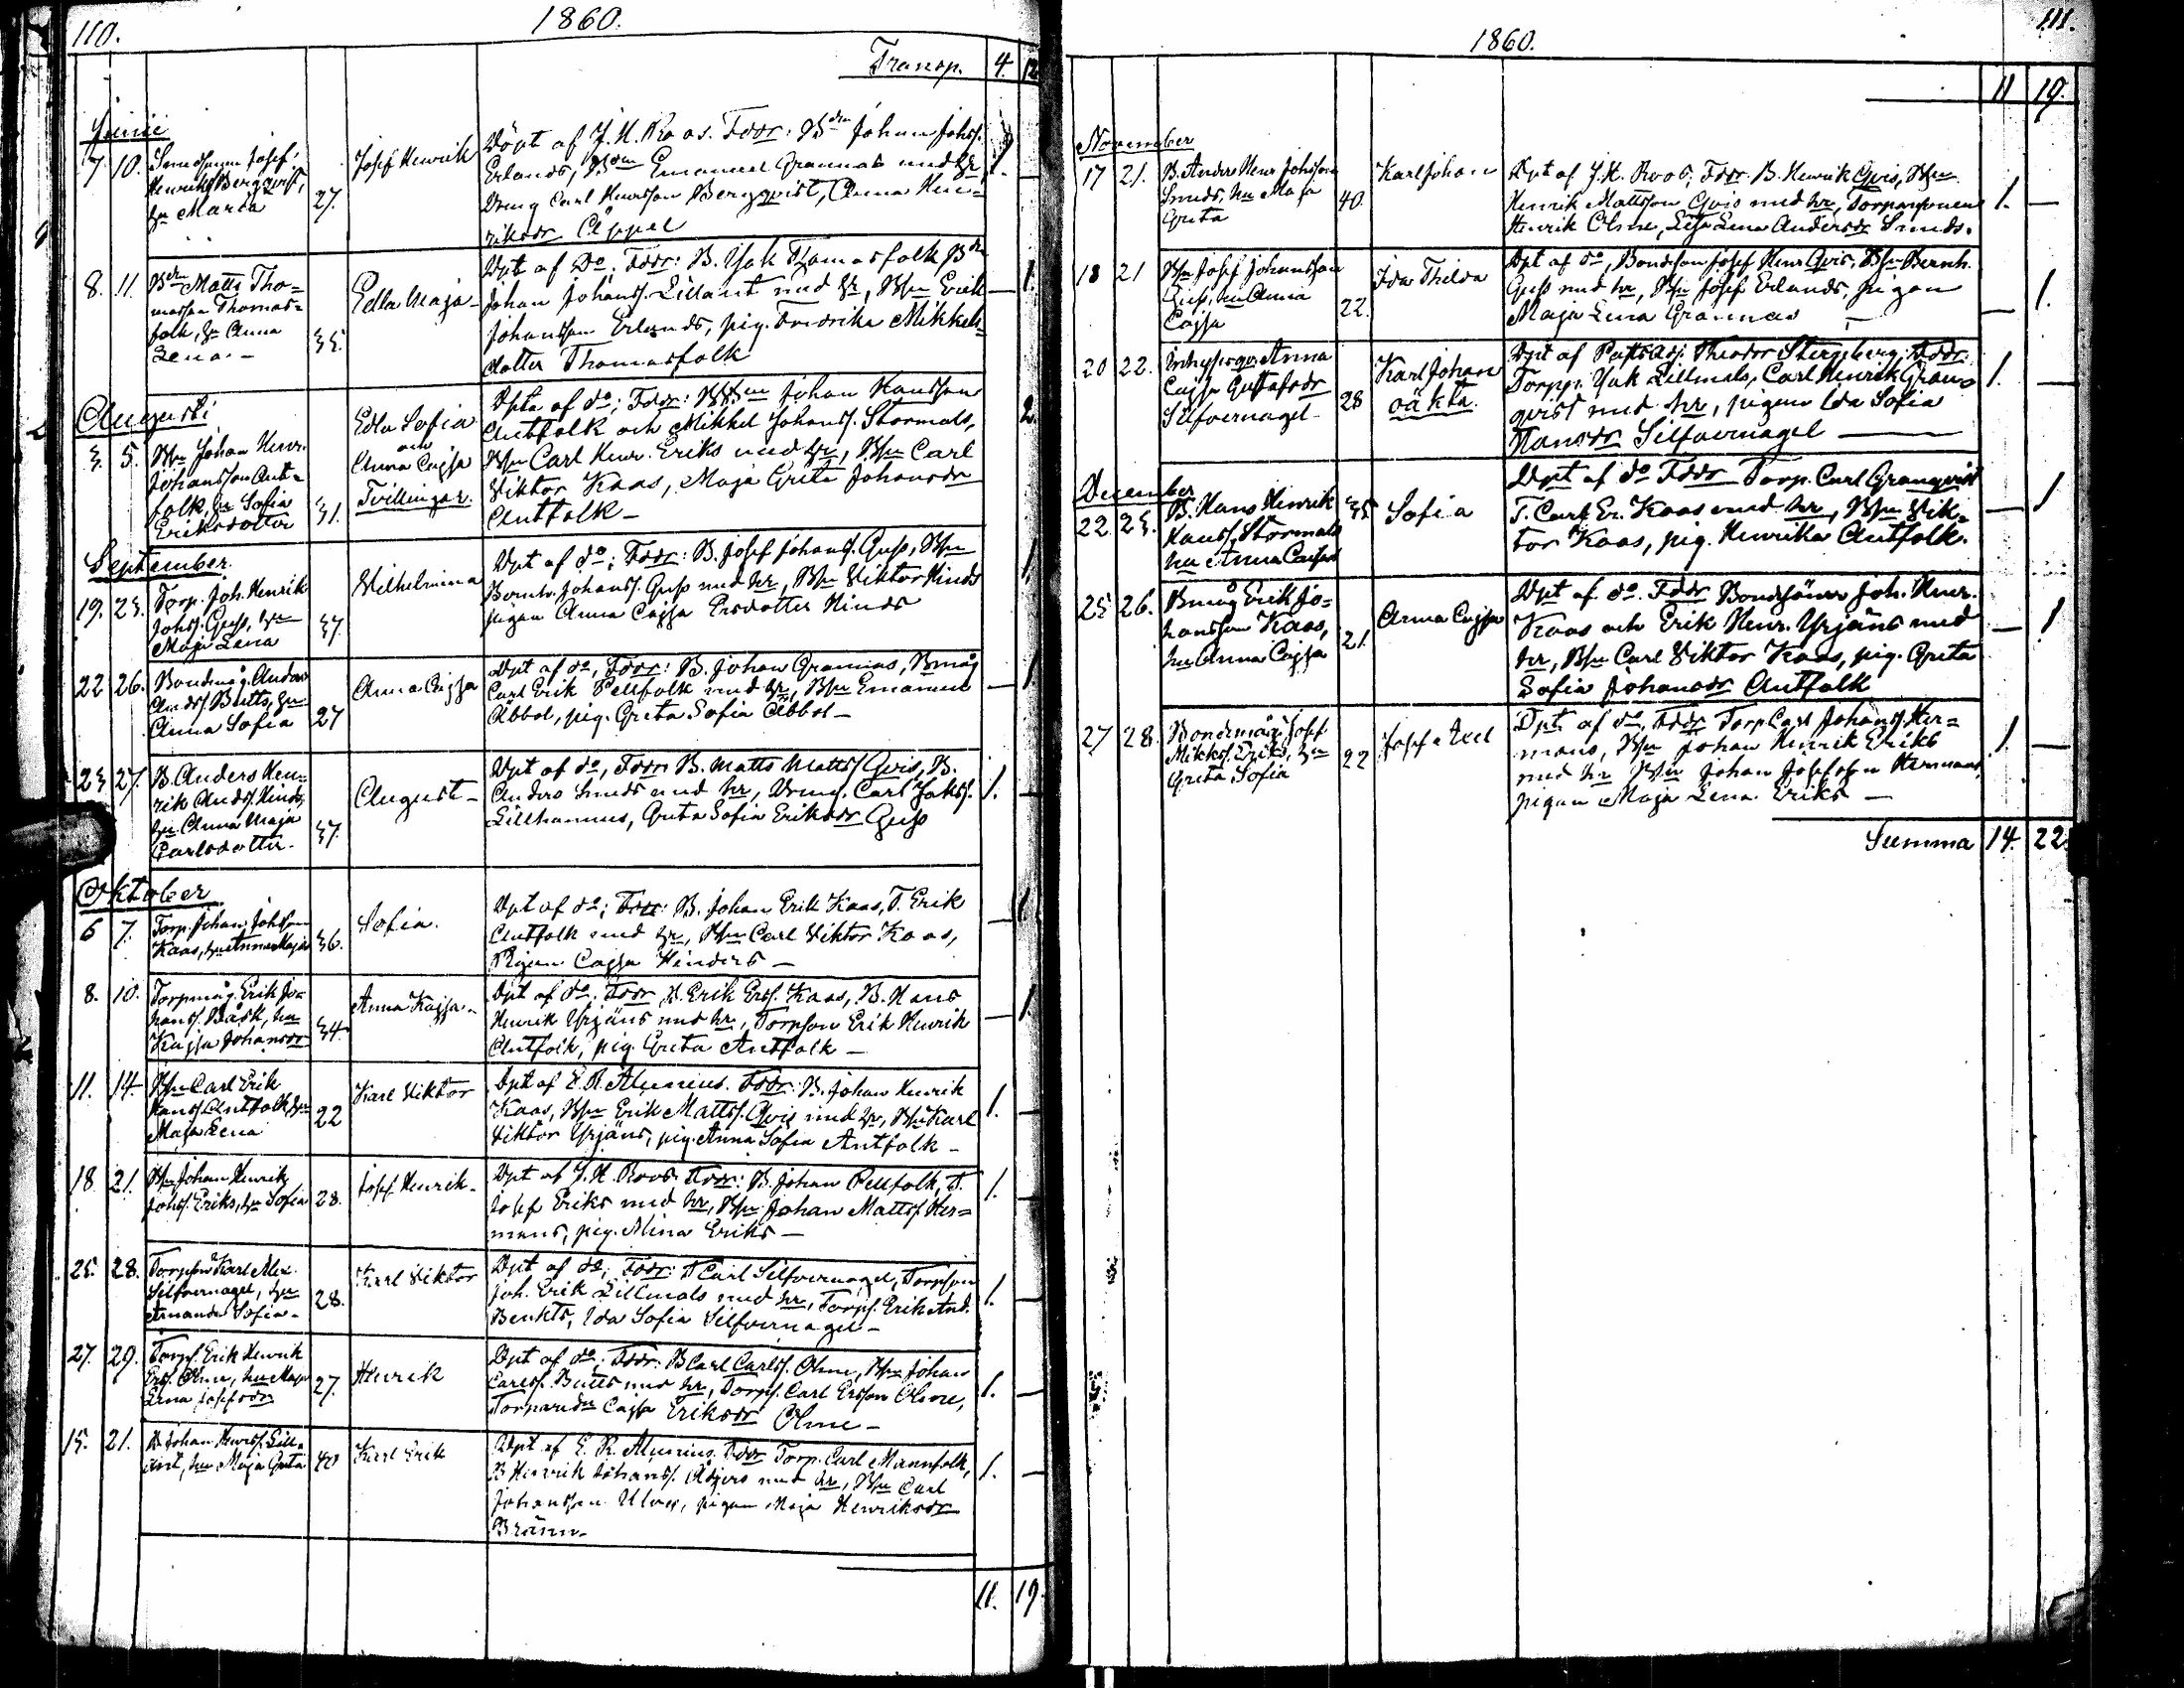 110.
1860.
Transp. 4. 12
Junii
7 10. Smedsonen Josef
Henriks. Bergqvist,
hu Maria 27.
Josef Henrik
Döpt af J. H. Roos. Fddr: Bdn Johan Johss.
Erlands, Emanuel Grannas med hr
Dreng Carl Henrsson Bergqvist, Anna Hen=
riksdr Äppel
1.
8. 11. Bdn Matts Tho=
masson Thomas=
folk, hu Anna
Lena. — 35.
Edla Maja
Dpt af Do; Fddr: B. Jak Thomasfolk Bdn
Johan Johanss. Lillant med hr, Bsn Erik
Johansson Erlands, pig. Fredrika Mikkels=
dotter Thomasfolk
— 1.
Augusti
3. 5. Bsn Johan Henr.
Johansson Ant=
folk, hu Sofia
Eriksdotter 31.
Edla Sofia
och
Anna Cajsa
Tvillingar.
Dpta af do; Fddr: Johan Hansson
Antfolk och Mikkel Johanss. Stormals,
Bsn Carl Henr. Eriks med hr, Bsn Carl
Viktor Kaas, Maja Greta Johansdr
Antfolk —
2.
September.
19. 23. Torp. Joh. Henrik
Johss. Guss, hu
Maja Lena 37.
Wilhelmina
Dpt af do; Fddr: B. Josef Johanss. Guss, Bsn
Bernh. Johanss. Guss med hr, Bsn Viktor Hinds
pigan Anna Cajsa Ersdotter Hinds
1.
22 26. Bondmåg. Anders
Andss. Butts, hu
Anna Sofia 27
Anna Cajsa
Dpt af do, Fddr: B. Johan Grannas, Bmåg
Carl Erik Pellfolk med hr, Bsn Emanuel
Äbbol, pig. Greta Sofia Äbbol —
— 1
23 27. B. Anders Hen=
rik Andss. Hinds,
hu Anna Maja
Carlsdotter. 37.
August —
Dpt af do, Fddr B. Matts Mattss Qvis, B.
Anders Smeds med hr, Dreng. Carl Jakss.
Lillhannus, Greta Sofia Eriksdr Guss
1. —
Oktober
6 7. Torp. Johan Johsson
Kaas, hu Anna Maja 36.
Sofia.
Dpt af do; Fddr: B. Johan Erik Kaas, T. Erik
Antfolk med hr, Bsn Carl Viktor Kaas,
Pigan Cajsa Hinders —
— 1.
8. 10. Torpmåg. Erik Jo=
hanss. Bäsk, hu
Kajsa Johansdr 34.
Anna Kajsa.
Dpt af do. Fddr B. Erik Erss. Kaas, B. Hans
Henrik Yrjäns med hr, Torpson Erik Henrik
Antfolk, pig. Greta Antfolk —
— 1.
11. 14. Bsn Carl Erik
Hanss. Antfolk, hu
Maja Lena 22
Karl Viktor
Dpt af E. R. Alcenius. Fddr: B. Johan Henrik
Kaas, Bsn Erik Mattss. Qvis med hr, Bsn Karl
Viktor Yrjäns, pig. Anna Sofia Antfolk —
1. —
18 21. Bsn Johan Henrik
Johss. Eriks, hu Sofia 28.
Josef Henrik.
Dpt af J. H. Roos. Fddr: B. Johan Pellfolk, T.
Josef Eriks med hr, Bsn Johan Mattss Her=
mans, pig. Mina Eriks —
1. —
25. 28. Torpson Karl Alex.
Silfvernagel, hu
Amanda Sofia. 28.
Karl Viktor
Dpt af do; Fddr: T Carl Silfvernagel, Torpson
Joh. Erik Lillmals med hr, Torps. Erik And.
Benkts, Ida Sofia Silfvernagel —
1. —
27. 29. Torps. Erik Henrik
Erss. Ohne, hu Maja
Lena Josefsdr 27.
Henrik
Dpt af do; Fddr: B Carl Carlss. Ohne, Bsn Johan
Carlss. Butts med hr, Torps. Carl Ersson Ohne,
Cajsa Eriksdr Ohne —
1. —
15. 21. B Johan Henrss. Lill=
änt, hu Maja Greta 40
Karl Erik
Dpt af E. R. Alcenius. Fddr Torp. Carl Mannfolk,
B Henrik Johanss. med hr, Bsn Carl
Johansson, pigan Maja Henriksdr
Bränn.
1. —
11. 19.
111.
1860.
11 19.
November
17 21. B. Anders Henr Johsson
Smeds, hu Maja
Greta 40.
Karl Johan
Dpt af J. H. Roos; Fddr. B. Henrik Qvis, Bsn
Henrik Mattsson Qvis med hr, Torparsonen
Henrik Ohne, Lisa Lena Andersdr Smeds.
1. —
18 21 Bsn Josef Johansson
Guss, hu Anna
Cajsa 22.
Ida Thilda
Dpt af do, Bondeson Josef Henr Qvis, Bsn Bernh.
Guss med hr, Bsn Josef Erlands, pigan
Maja Lena Grannas —
— 1.
20 22. Anna
Cajsa Gustafsdr
Silfvernagel 28
Karl Johan
oäkta.
Dpt af Theodor Stergberg; Fddr.
Torpp. Jak Lillmals, Carl Henrik Gran=
qvist med hr, pigan Ida Sofia
Hansdr Silfvernagel —
1. —
December
22 23. B. Hans Henrik
Hanss. Stormals
hu Anna Cajsa 35
Sofia
Dpt af do Fddr Torp. Carl Granqvist
T. Carl Er. Kaas med hr, Bsn Vik=
tor Kaas, pig. Henrika Antfolk.
— 1
25 26. Bmåg Erik Jo=
hansson Kaas,
hu Anna Cajsa 21.
Anna Cajsa
Dpt af do. Fddr Bondsöner Joh. Henr.
Kaas och Erik Henr. Yrjäns med
hr, Bsn Carl Viktor Kaas, pig. Greta
Sofia Johansdr Antfolk
— 1
27 28. Bondemåg Josef
Mikkss. Eriks, hu
Greta Sofia 22
Josef Axel
Dpt af do, Fddr Torp Carl Johanss Her=
mans, Bsn Johan Henrik Eriks
med hr Bsn Johan Josefsson Hermans,
pigan Maja Lena Eriks —
1. —
Summa 14. 22.